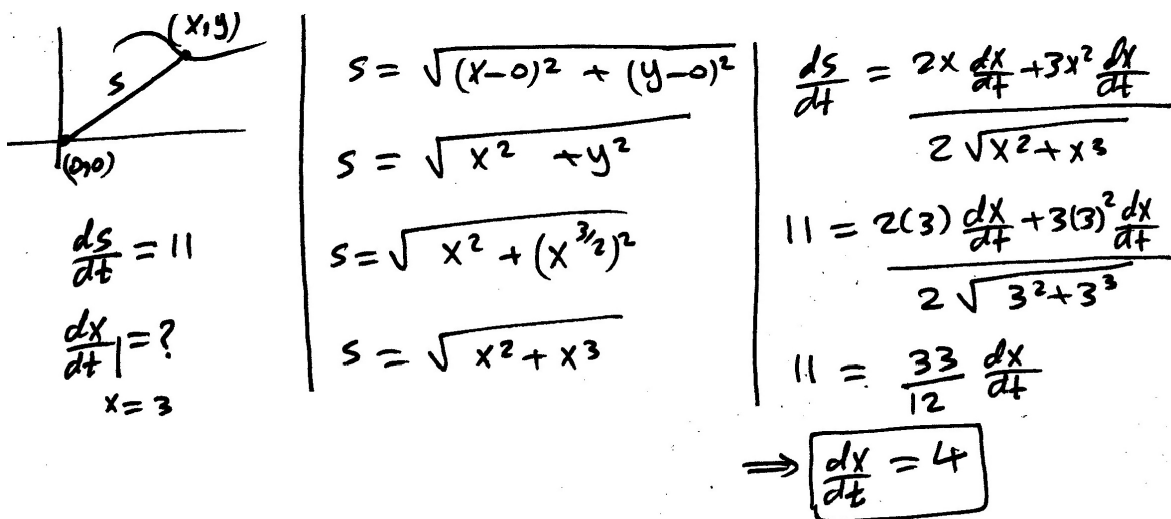 (x,y)
s
(0,0)
ds/dt = 11
dx/dt | = ?
x = 3
s = √((x-0)² + (y-0)²)
s = √(x² + y²)
s = √(x² + (x^(3/2))²)
s = √(x² + x³)
ds/dt = (2x dx/dt + 3x² dx/dt) / (2√(x² + x³))
11 = (2(3) dx/dt + 3(3)² dx/dt) / (2√(3² + 3³))
11 = 33/12 dx/dt
⇒ dx/dt = 4